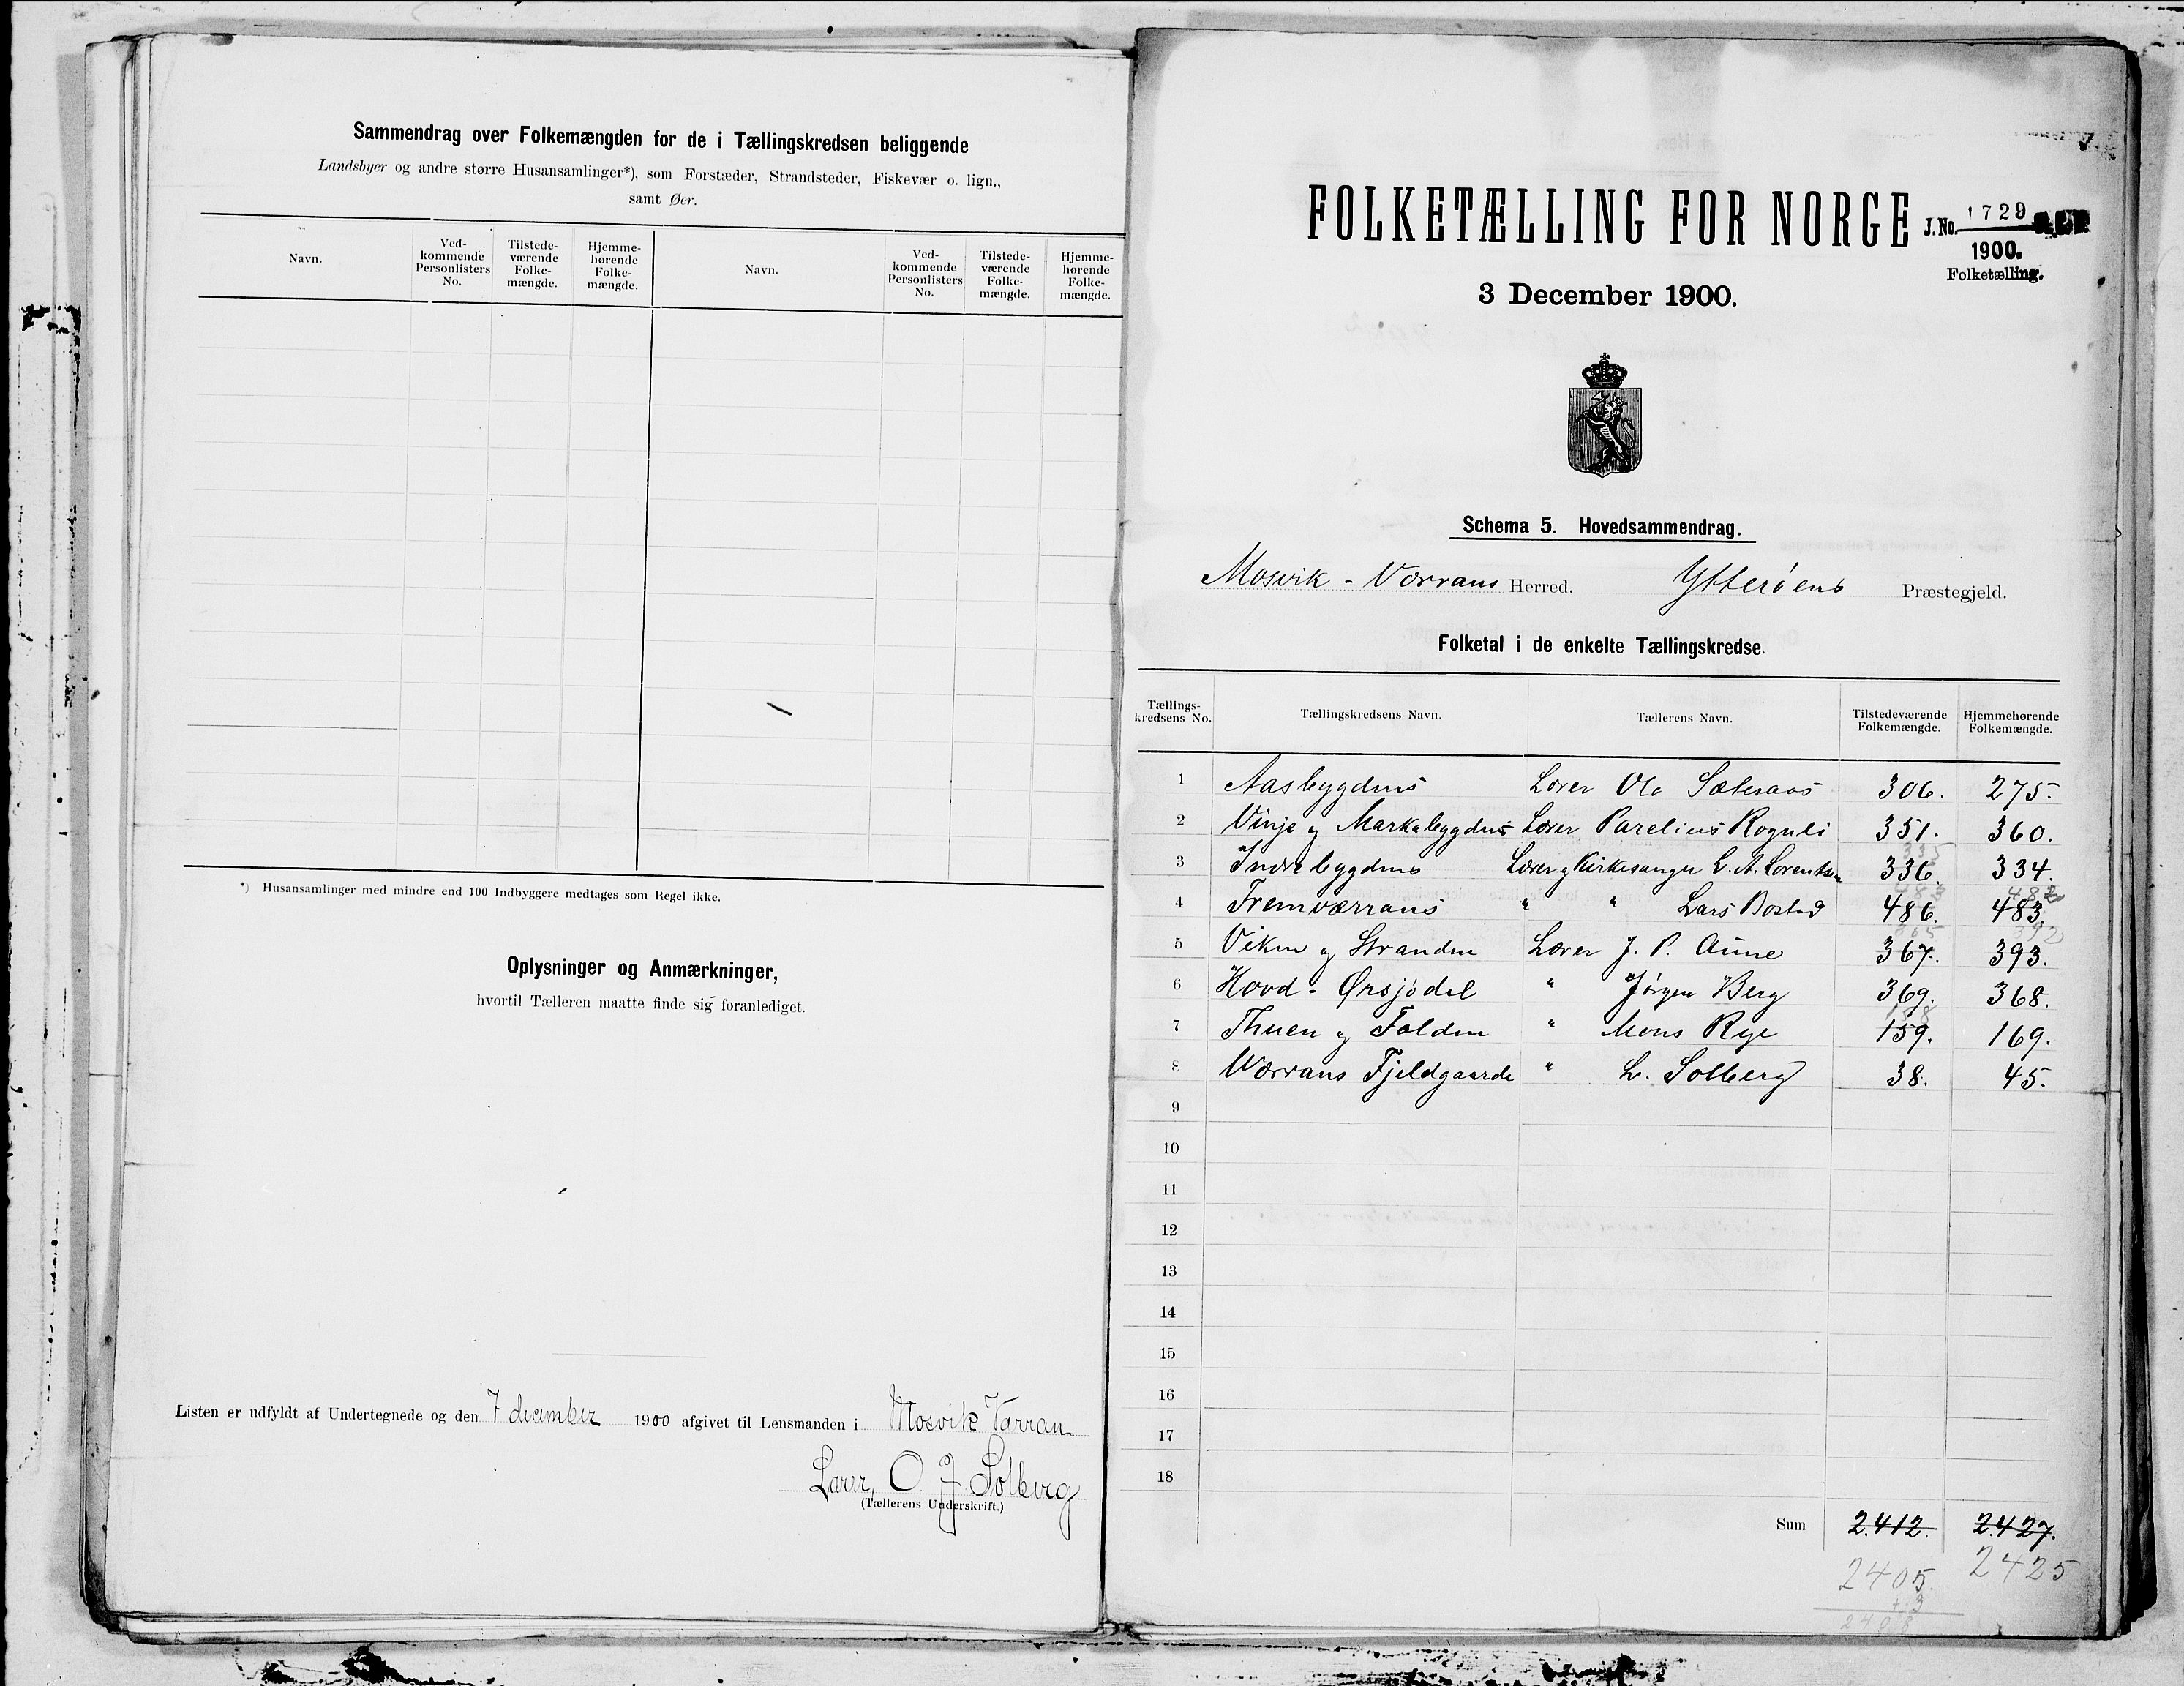 Sammendrag over Folkemængden for de i Tællingskredsen beliggende
Landsbyer og andre større Husansamlinger*), som Forstæder, Strandsteder, Fiskevær o. lign.,
samt Øer.
Navn. Ved-kommende Personlisters No. Tilstede-værende Folke-mængde. Hjemme-hørende Folke-mængde. Navn. Ved-kommende Personlisters No. Tilstede-værende Folke-mængde. Hjemme-hørende Folke-mængde.
*) Husansamlinger med mindre end 100 Indbyggere medtages som Regel ikke.
Oplysninger og Anmærkninger,
hvortil Tælleren maatte finde sig foranlediget.
Listen er udfyldt af Undertegnede og den 7 december 1900 afgivet til Lensmanden i Mosvik Varran
Lærer O J Solberg
(Tællerens Underskrift.)
FOLKETÆLLING FOR NORGE
J. No. 1729
1900.
Folketælling.
3 December 1900.
Schema 5. Hovedsammendrag.
Mosvik - Værrans Herred. Ytterøens Præstegjeld.
Folketal i de enkelte Tællingskredse.
Tællings-kredsens No. Tællingskredsens Navn. Tællerens Navn. Tilstedeværende Folkemængde. Hjemmehørende Folkemængde.
1 Aasbygdens Lærer Ole Sæteraas 306. 275.
2 Vinje og Markabygdens Lærer Parelius Roguli 351. 360.
3 Indrebygdens Lærer og Kirkesanger L. A. Lorentsen 336. 334.
4 Fremværrans " " Lars Bostad 486. 483.
5 Viken og Stranden Lærer J. P. Aune 367. 393.
6 Hovd - Ørsjødal " Jørgen Berg 369. 368.
7 Thuen og Folden " Mons Rye 159. 169.
8 Værrans Fjeldgaarde " L. Solberg 38. 45.
9
10
11
12
13
14
15
16
17
18
Sum 2.412. 2.427.
2405. 2425
+3
2408